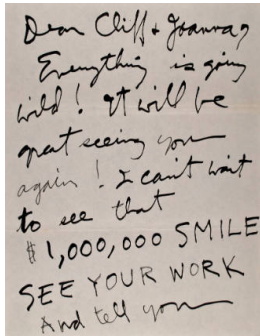 Dear Cliff & Joanna,
Everything is going
wild! It will be
great seeing you
again! I can't wait
to see that
$1,000,000 SMILE
SEE YOUR WORK
And tell you